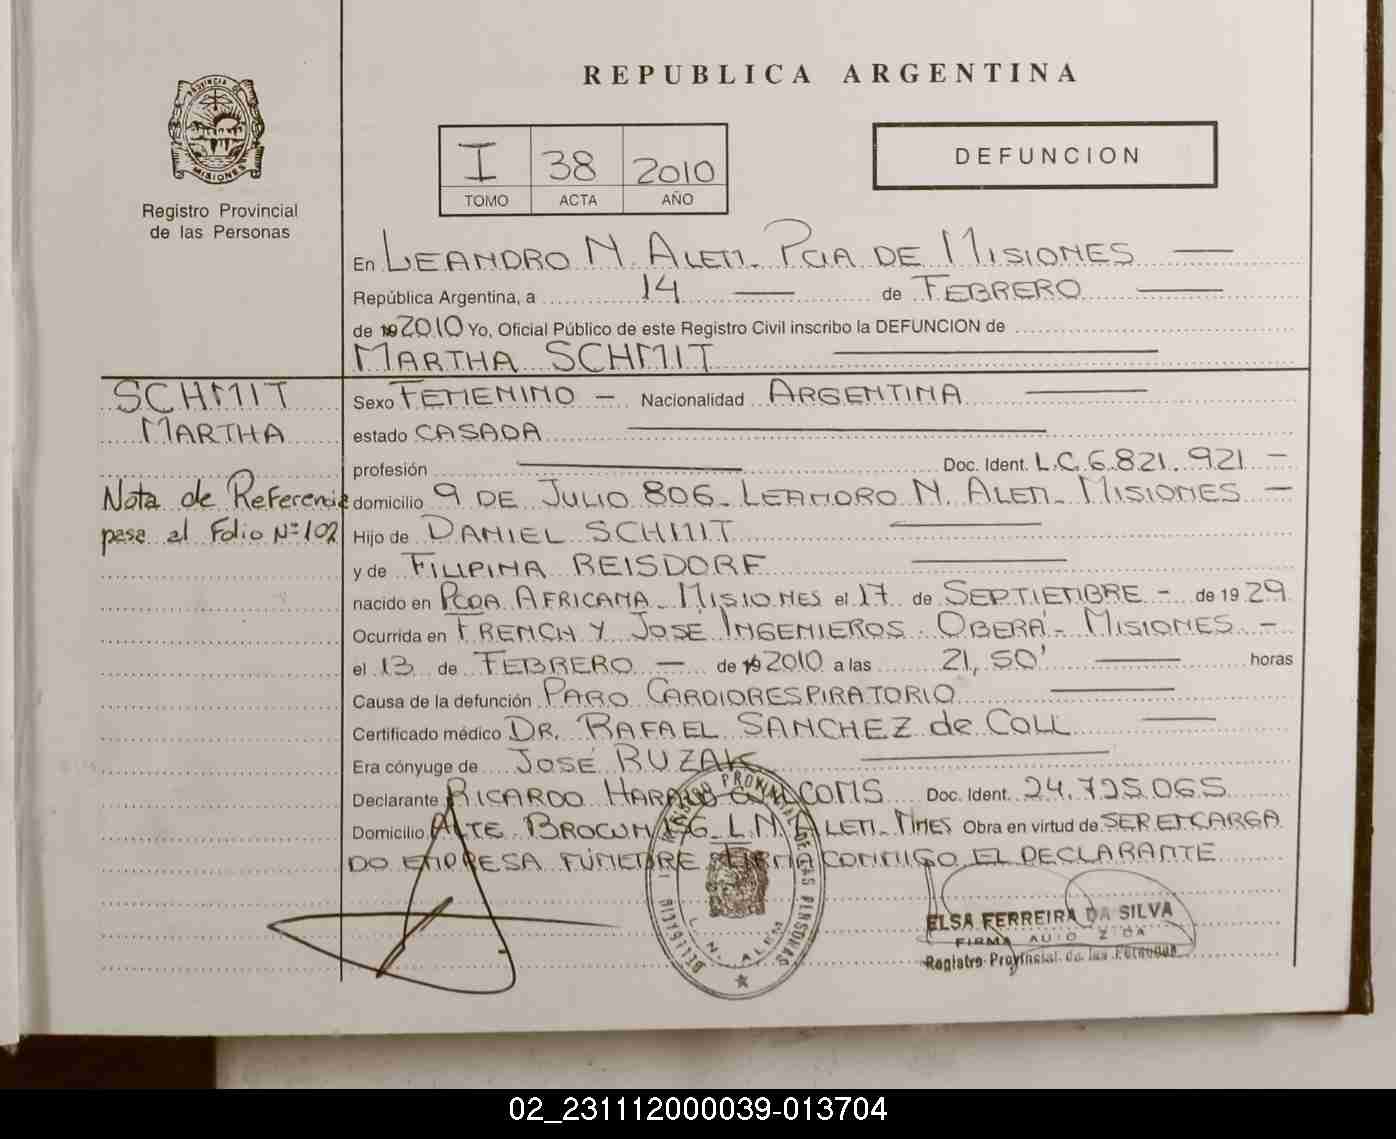 REPUBLICA ARGENTINA
PROVINCIA DE
MISIONES
Registro Provincial
de las Personas
I 38 2010
TOMO ACTA AÑO
DEFUNCION
En LEANDRO N. ALEM. PCIA DE MISIONES
República Argentina, a 14 de FEBRERO
de 192010 Yo, Oficial Público de este Registro Civil inscribo la DEFUNCION de
MARTHA SCHMIT
SCHMIT
MARTHA
Nota de Referencia
pasa al Folio Nº 102
Sexo FEMENINO - Nacionalidad ARGENTINA
estado CASADA
profesión Doc. Ident. L.C. 6.821.921 -
domicilio 9 DE JULIO 806- LEANDRO N. ALEM- MISIONES -
Hijo de DANIEL SCHMIT
y de FILIPINA REISDORF
nacido en PCDA AFRICANA- MISIONES el 17 de SEPTIEMBRE - de 1929
Ocurrida en FRENCH Y JOSÉ INGENIEROS. OBERÁ- MISIONES -
el 13 de FEBRERO - de 192010 a las 21,50' horas
Causa de la defunción PARO CARDIORESPIRATORIO
Certificado médico DR. RAFAEL SANCHEZ de COLL
Era cónyuge de JOSÉ BUZAK
Declarante RICARDO Doc. Ident. 24.725.065
Domicilio ALTE BROWN L.N. ALEM- MNES Obra en virtud de SER ENCARGA
DO EMPRESA FÚNEBRE FIRMA CONMIGO EL DECLARANTE
REGISTRO PROVINCIAL DE LAS PERSONAS
L. N. ALEM
ELSA FERREIRA DA SILVA
FIRMA
Registro Provincial de las Personas
02_231112000039-013704